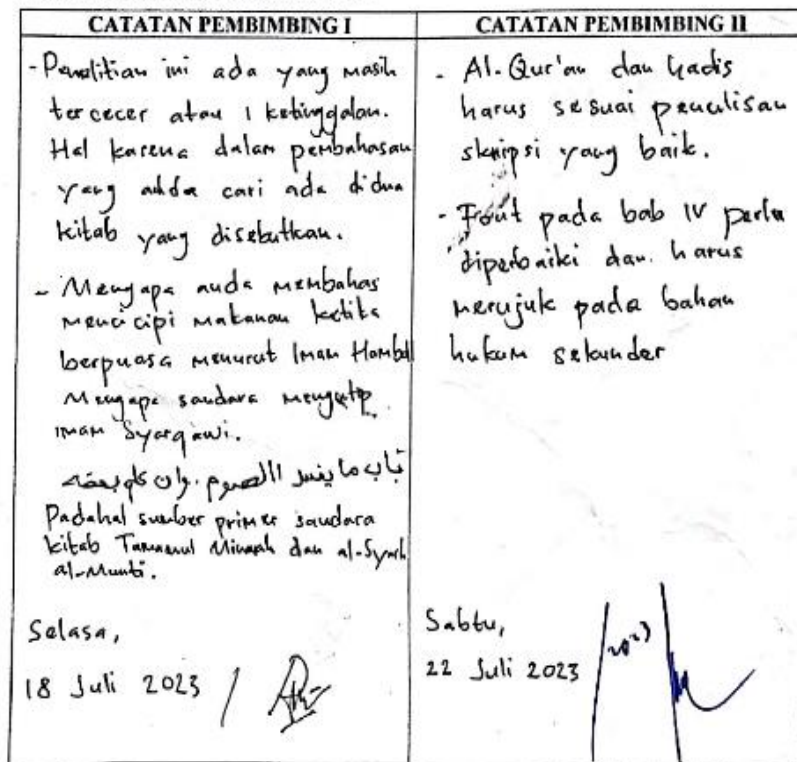 CATATAN PEMBIMBING I
- Penelitian ini ada yang masih
tercecer atau 1 ketinggalan.
Hal karena dalam pembahasan
yang anda cari ada didua
kitab yang disebutkan.
- Mengapa anda membahas
mencicipi makanan ketika
berpuasa menurut Imam Hambali
Mengapa saudara mengutip
imam Syarqawi.
باب ما يفسد الصوم. وان
Padahal sumber primer saudara
kitab Tamamul Minnah dan al-Syarh
al-Mumti.
Selasa,
18 Juli 2023
CATATAN PEMBIMBING II
- Al-Qur'an dan hadis
harus sesuai penulisan
skripsi yang baik.
- Font pada bab IV perlu
diperbaiki dan harus
merujuk pada bahan
hukum sekunder
Sabtu,
22 Juli 2023